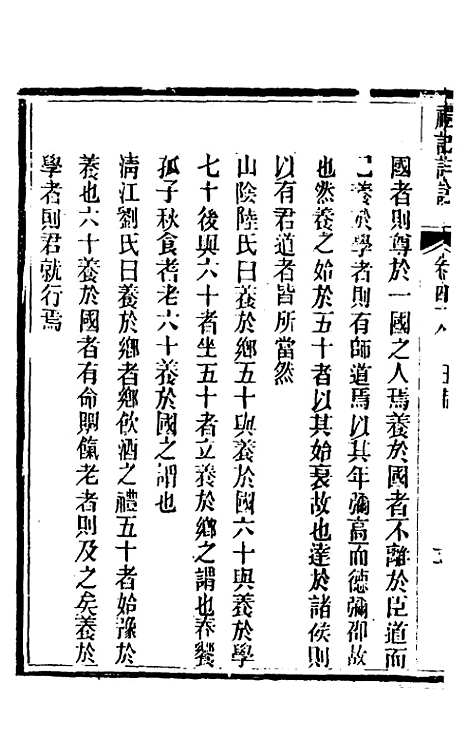 國者則尊於一國之人焉養於國者不離於臣道而
已養於學者則有師道焉以其年彌高而德彌卲故
也然養之始於五十者以其始衰故也達於諸侯則
以有君道者皆所當然
山陰陸氏曰養於鄉五十與養於國六十與養於學
七十後與六十者坐五十者立養於鄉之謂也春饗
孤子秋食耆老六十養於國之謂也
清江劉氏曰養於鄉者鄉飲酒之禮五十者始豫於
養也六十養於國者有命賜餼老者則及之矣養於
學者則君就行焉